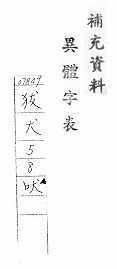 補充資料
異體字表
07849
狘
犬
5
8
吠